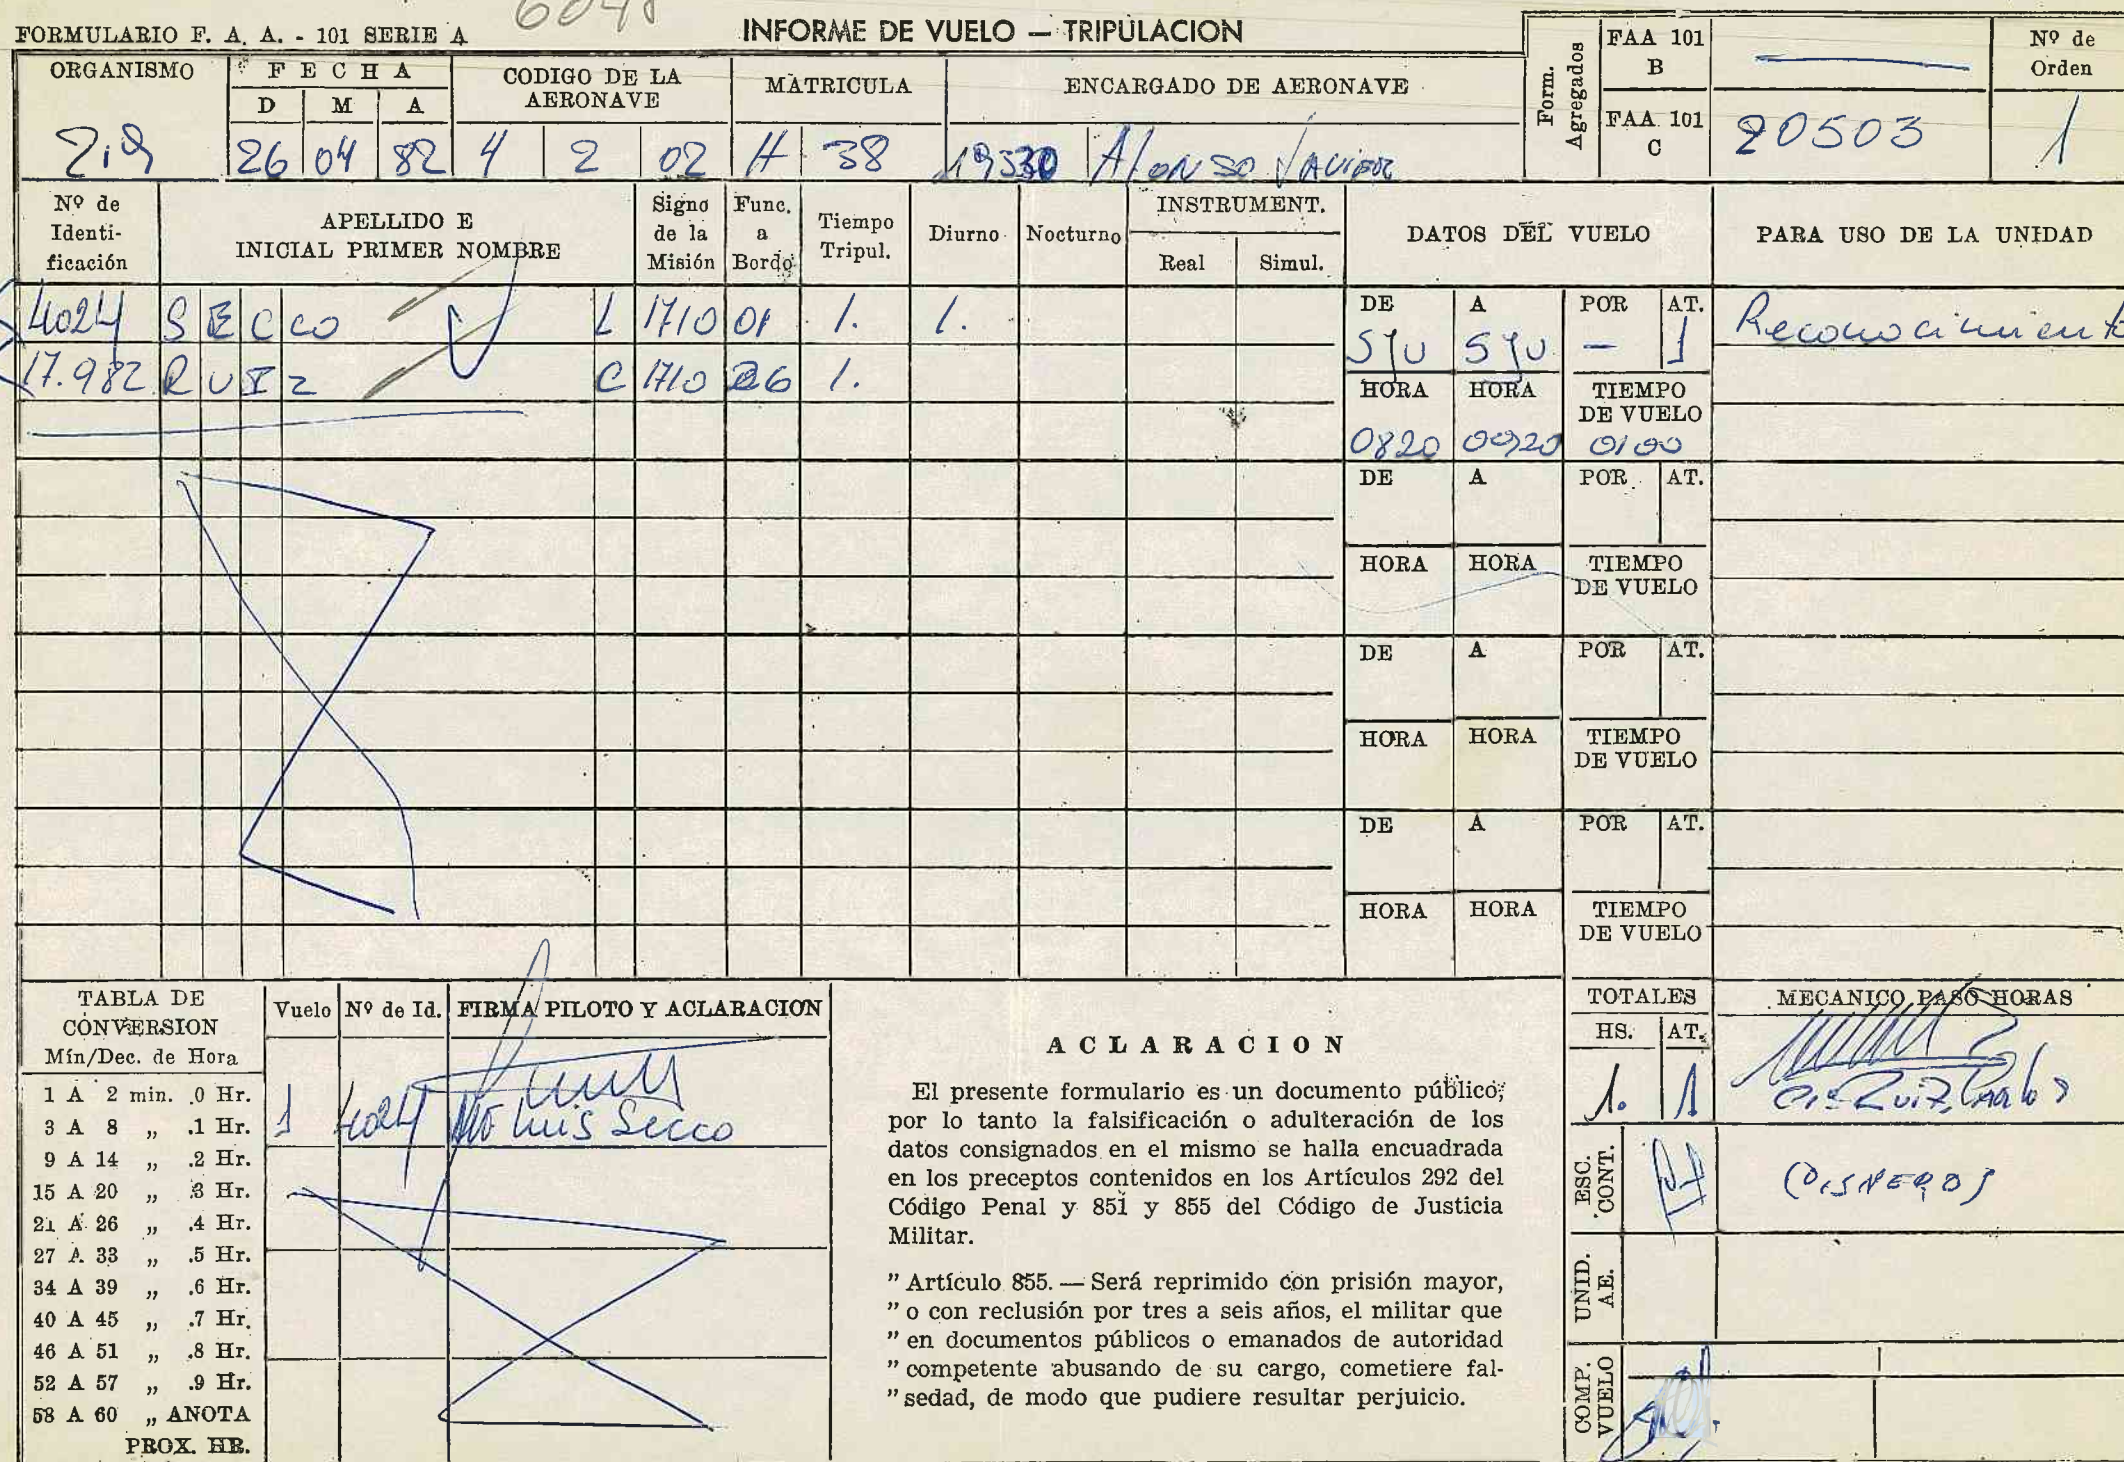 FORMULARIO F. A. A. - 101 SERIE A
INFORME DE VUELO — TRIPULACION
ORGANISMO
FECHA
D M A
26 04 82
CODIGO DE LA AERONAVE
4 2 02
MATRICULA
H 38
ENCARGADO DE AERONAVE
19530 Alonso Javier
Form. Agregados
FAA 101 B —
FAA 101 C 20503
Nº de Orden
1
Nº de Identi-ficación
APELLIDO E INICIAL PRIMER NOMBRE
Signo de la Misión
Func. a Bordo
Tiempo Tripul.
Diurno
Nocturno
INSTRUMENT.
Real Simul.
DATOS DEL VUELO
PARA USO DE LA UNIDAD
4024 SECCO L 1710 01 1. 1.
17.982 RUIZ C 1710 26 1.
DE A POR AT.
SJU SJU — 1
Reconocimiento
HORA HORA TIEMPO DE VUELO
0820 0920 0100
DE A POR AT.
HORA HORA TIEMPO DE VUELO
DE A POR AT.
HORA HORA TIEMPO DE VUELO
DE A POR AT.
HORA HORA TIEMPO DE VUELO
TABLA DE CONVERSION
Mín/Dec. de Hora
1 A 2 min. .0 Hr.
3 A 8 „ .1 Hr.
9 A 14 „ .2 Hr.
15 A 20 „ .3 Hr.
21 A 26 „ .4 Hr.
27 A 33 „ .5 Hr.
34 A 39 „ .6 Hr.
40 A 45 „ .7 Hr.
46 A 51 „ .8 Hr.
52 A 57 „ .9 Hr.
58 A 60 „ ANOTA
PROX. HR.
Vuelo Nº de Id. FIRMA PILOTO Y ACLARACION
1 4024 Luis Secco
ACLARACION
El presente formulario es un documento público;
por lo tanto la falsificación o adulteración de los
datos consignados en el mismo se halla encuadrada
en los preceptos contenidos en los Artículos 292 del
Código Penal y 851 y 855 del Código de Justicia
Militar.
" Artículo 855. — Será reprimido con prisión mayor,
" o con reclusión por tres a seis años, el militar que
" en documentos públicos o emanados de autoridad
" competente abusando de su cargo, cometiere fal-
" sedad, de modo que pudiere resultar perjuicio.
TOTALES
HS. AT.
1. 1
MECANICO PASO HORAS
Ruiz Carlos
ESC. CONT.
UNID. AE.
COMP. VUELO